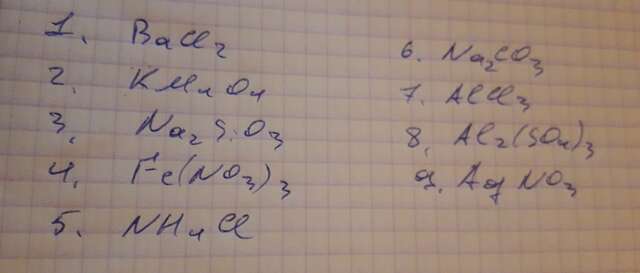 1. BaCl2
2. KMnO4
3. Na2SiO3
4. Fe(NO3)3
5. NH4Cl
6. Na2CO3
7. AlCl3
8. Al2(SO4)3
9. AgNO3